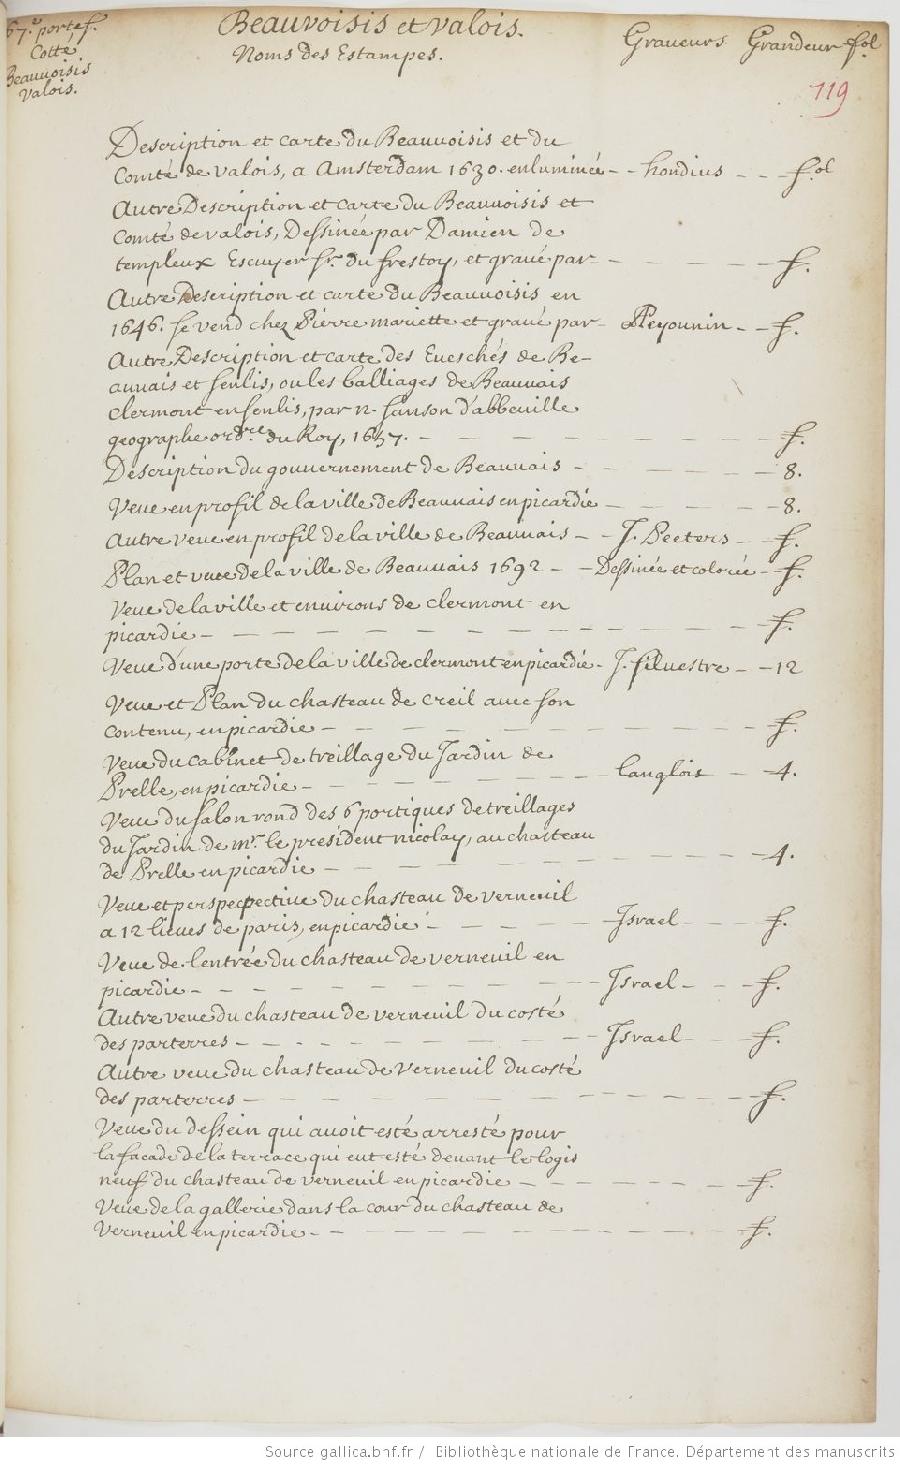 67.e portef.
Cotté
Beauvoisis
Valois.
Beauvoisis et Valois.
Noms des Estampes. Graveurs Grandeur fol
119
Description et carte du Beauvoisis et du
Comté de Valois, a Amsterdam 1630. enluminée - - hondius - - - fol
Autre Description et carte du Beauvoisis et
Comté de valois, Dessinée par Damien de
templeux Escuyer Sr. du frestoy, et gravé par - - - - - f.
Autre Description et carte du Beauvoisis en
1646. se vend chez Pierre mariette et gravé par - APeyounin - - f.
Autre Description et carte des Eveschés de Be-
auvais et senlis, ou les balliages de Beauvais
clermont en senlis, par n. sanson d'abbeville
geographe ordre. du Roy, 1657. - - - - - - - f.
Description du gouvernement de Beauvais - - - - - - 8.
Veue en profil de la ville de Beauvais en picardie - - - - - 8.
Autre veue en profil de la ville de Beauvais - - J. Peeters - - f.
Plan et vuee de la ville de Beauvais 1692 - - Dessinée et colorée - f.
Veue de la ville et environs de clermont en
picardie - - - - - - - - - - - f.
Veue d'une porte de la ville de clermont en picardie - J. silvestre - - 12
Veue et Plan du chasteau de creil avec son
contenu, en picardie - - - - - - - - f.
Veue du cabinet de treillage du Jardin de
Prelle, en picardie - - - - - - - langlois - - 4.
Veue du salon rond des 6 portiques de treillages
du Jardin de mr. le président nicolay, au chasteau
de Prelle en picardie - - - - - - - - 4.
Veue et perspecpective du chasteau de verneuil
a 12 lieues de paris, en picardie - - - - - Israel - - - f.
Veue de l'entrée du chasteau de verneuil en
picardie - - - - - - - - - Israel - - - f.
Autre veue du chasteau de verneuil du costé
des parterres - - - - - - - - Israel - - - f.
Autre veue du chasteau de verneuil du costé
des parterres - - - - - - - - - - - f.
Veue du dessein qui avoit esté arresté pour
la facade de la terrace qui eut esté devant le logis
neuf du chasteau de verneuil en picardie - - - - - - f.
Veue de la gallerie dans la cour du chasteau de
verneuil en picardie - - - - - - - - - f.
Source gallica.bnf.fr / Bibliothèque nationale de France. Département des manuscrits